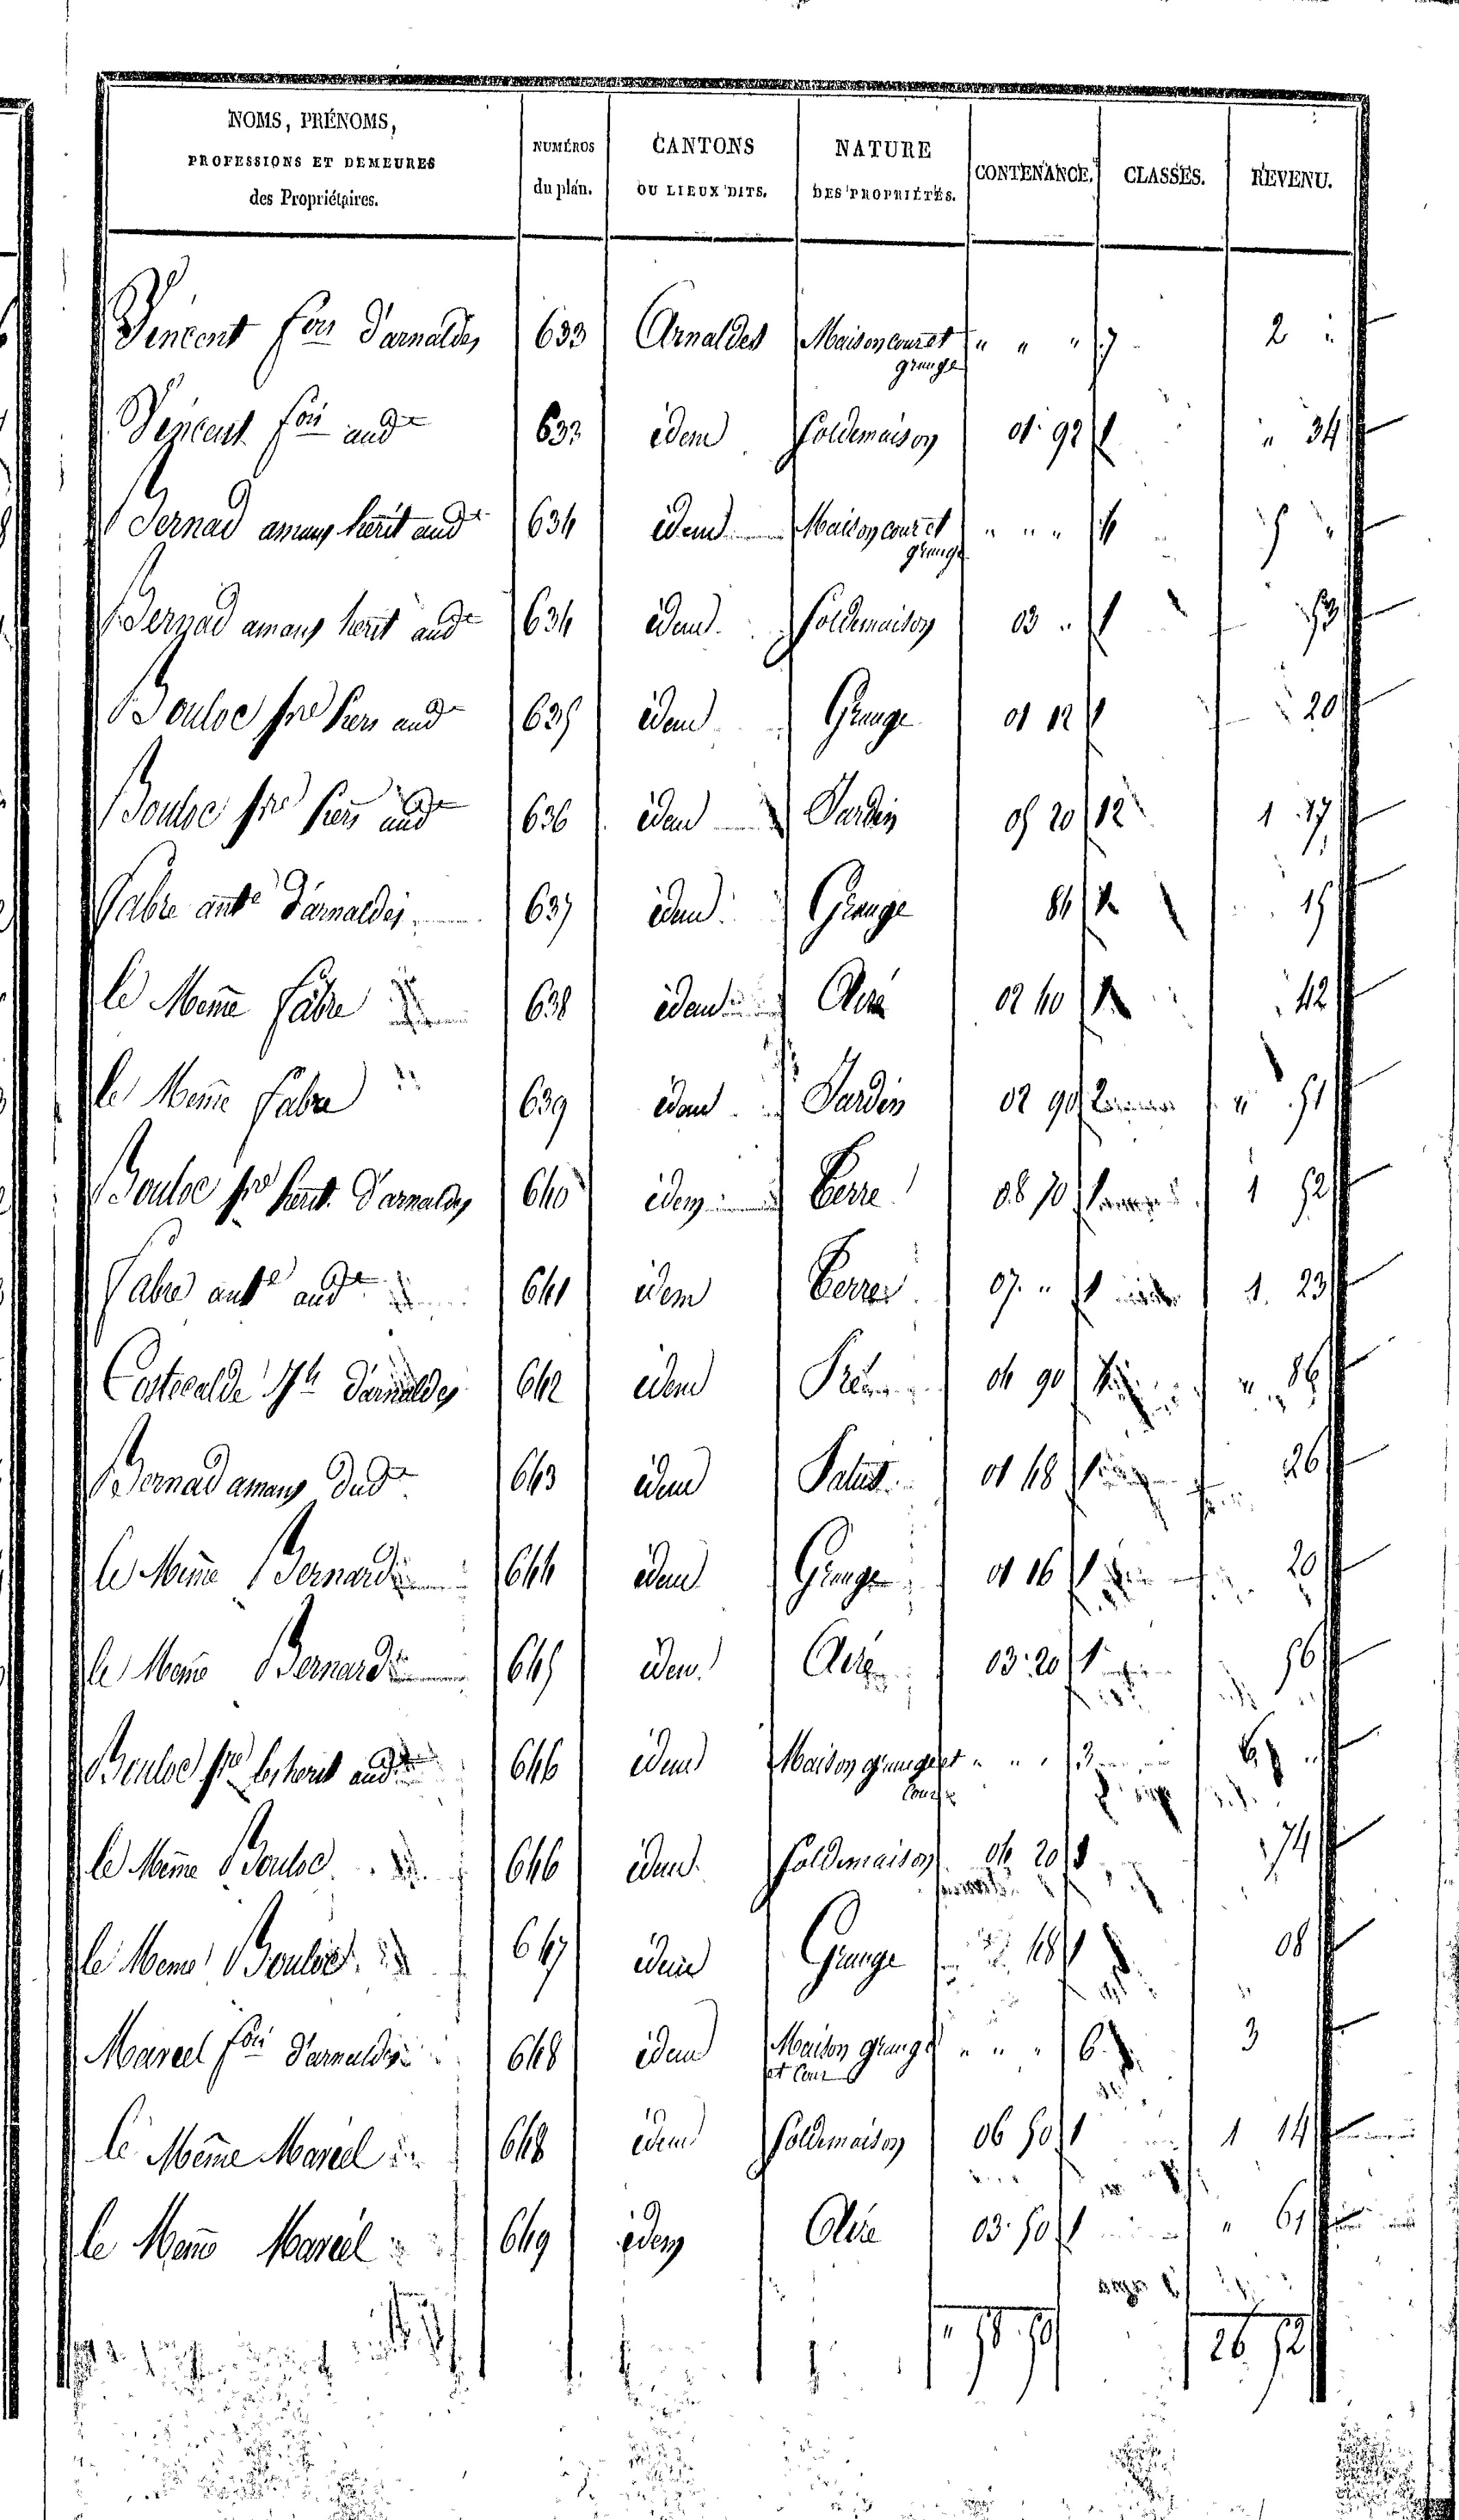 NOMS, PRÉNOMS,
PROFESSIONS ET DEMEURES
des Propriétaires.
NUMÉROS
du plan.
CANTONS
OU LIEUX DITS.
NATURE
DES PROPRIÉTÉS.
CONTENANCE.
CLASSES.
REVENU.
Vincent fois d'arnaldes 633 Arnaldes Maison cour et grange " " " 7 2 "
Vincent fois aud 633 idem Soldemaison 01 92 1 " 34
Bernad amans herit aud 634 idem Maison cour et grange " " " 4 5 "
Bernad amans herit aud 634 idem Soldemaison 03 " 1 53
Bouloc fre hers aud 635 idem Grange 01 12 1 20
Bouloc fre hers aud 636 idem Jardin 05 20 12 1 17
Fabre ante d'arnaldes 637 idem Grange 84 1 15
le Meme Fabre 638 idem Aire 02 40 1 42
le Meme Fabre 639 idem Jardin 02 90 2 " 51
Bouloc fre herit. d'arnaldes 640 idem Terre 08 70 1 1 52
Fabre ante aud 641 idem Terre 07 " 1 1 23
Castecalde Jh d'arnaldes 642 idem Pré 04 90 " 86
Bernad amans dud 643 idem Patus 01 48 1 26
le Meme Bernard 644 idem Grange 01 16 1 20
le Meme Bernard 645 idem Aire 03 20 1 56
Bouloc fre les herit aud 646 idem Maison grange et cour " " " 3 6 "
le Meme Bouloc 646 idem Soldemaison 04 20 1 74
le Meme Bouloc 647 idem Grange 48 1 08
Marcel fois d'arnaldes 648 idem Maison grange et cour " " " 6 3
le Meme Marcel 648 idem Soldemaison 06 50 1 1 14
le Meme Marcel 649 idem Aire 03 50 1 " 61
" 58 50 26 52